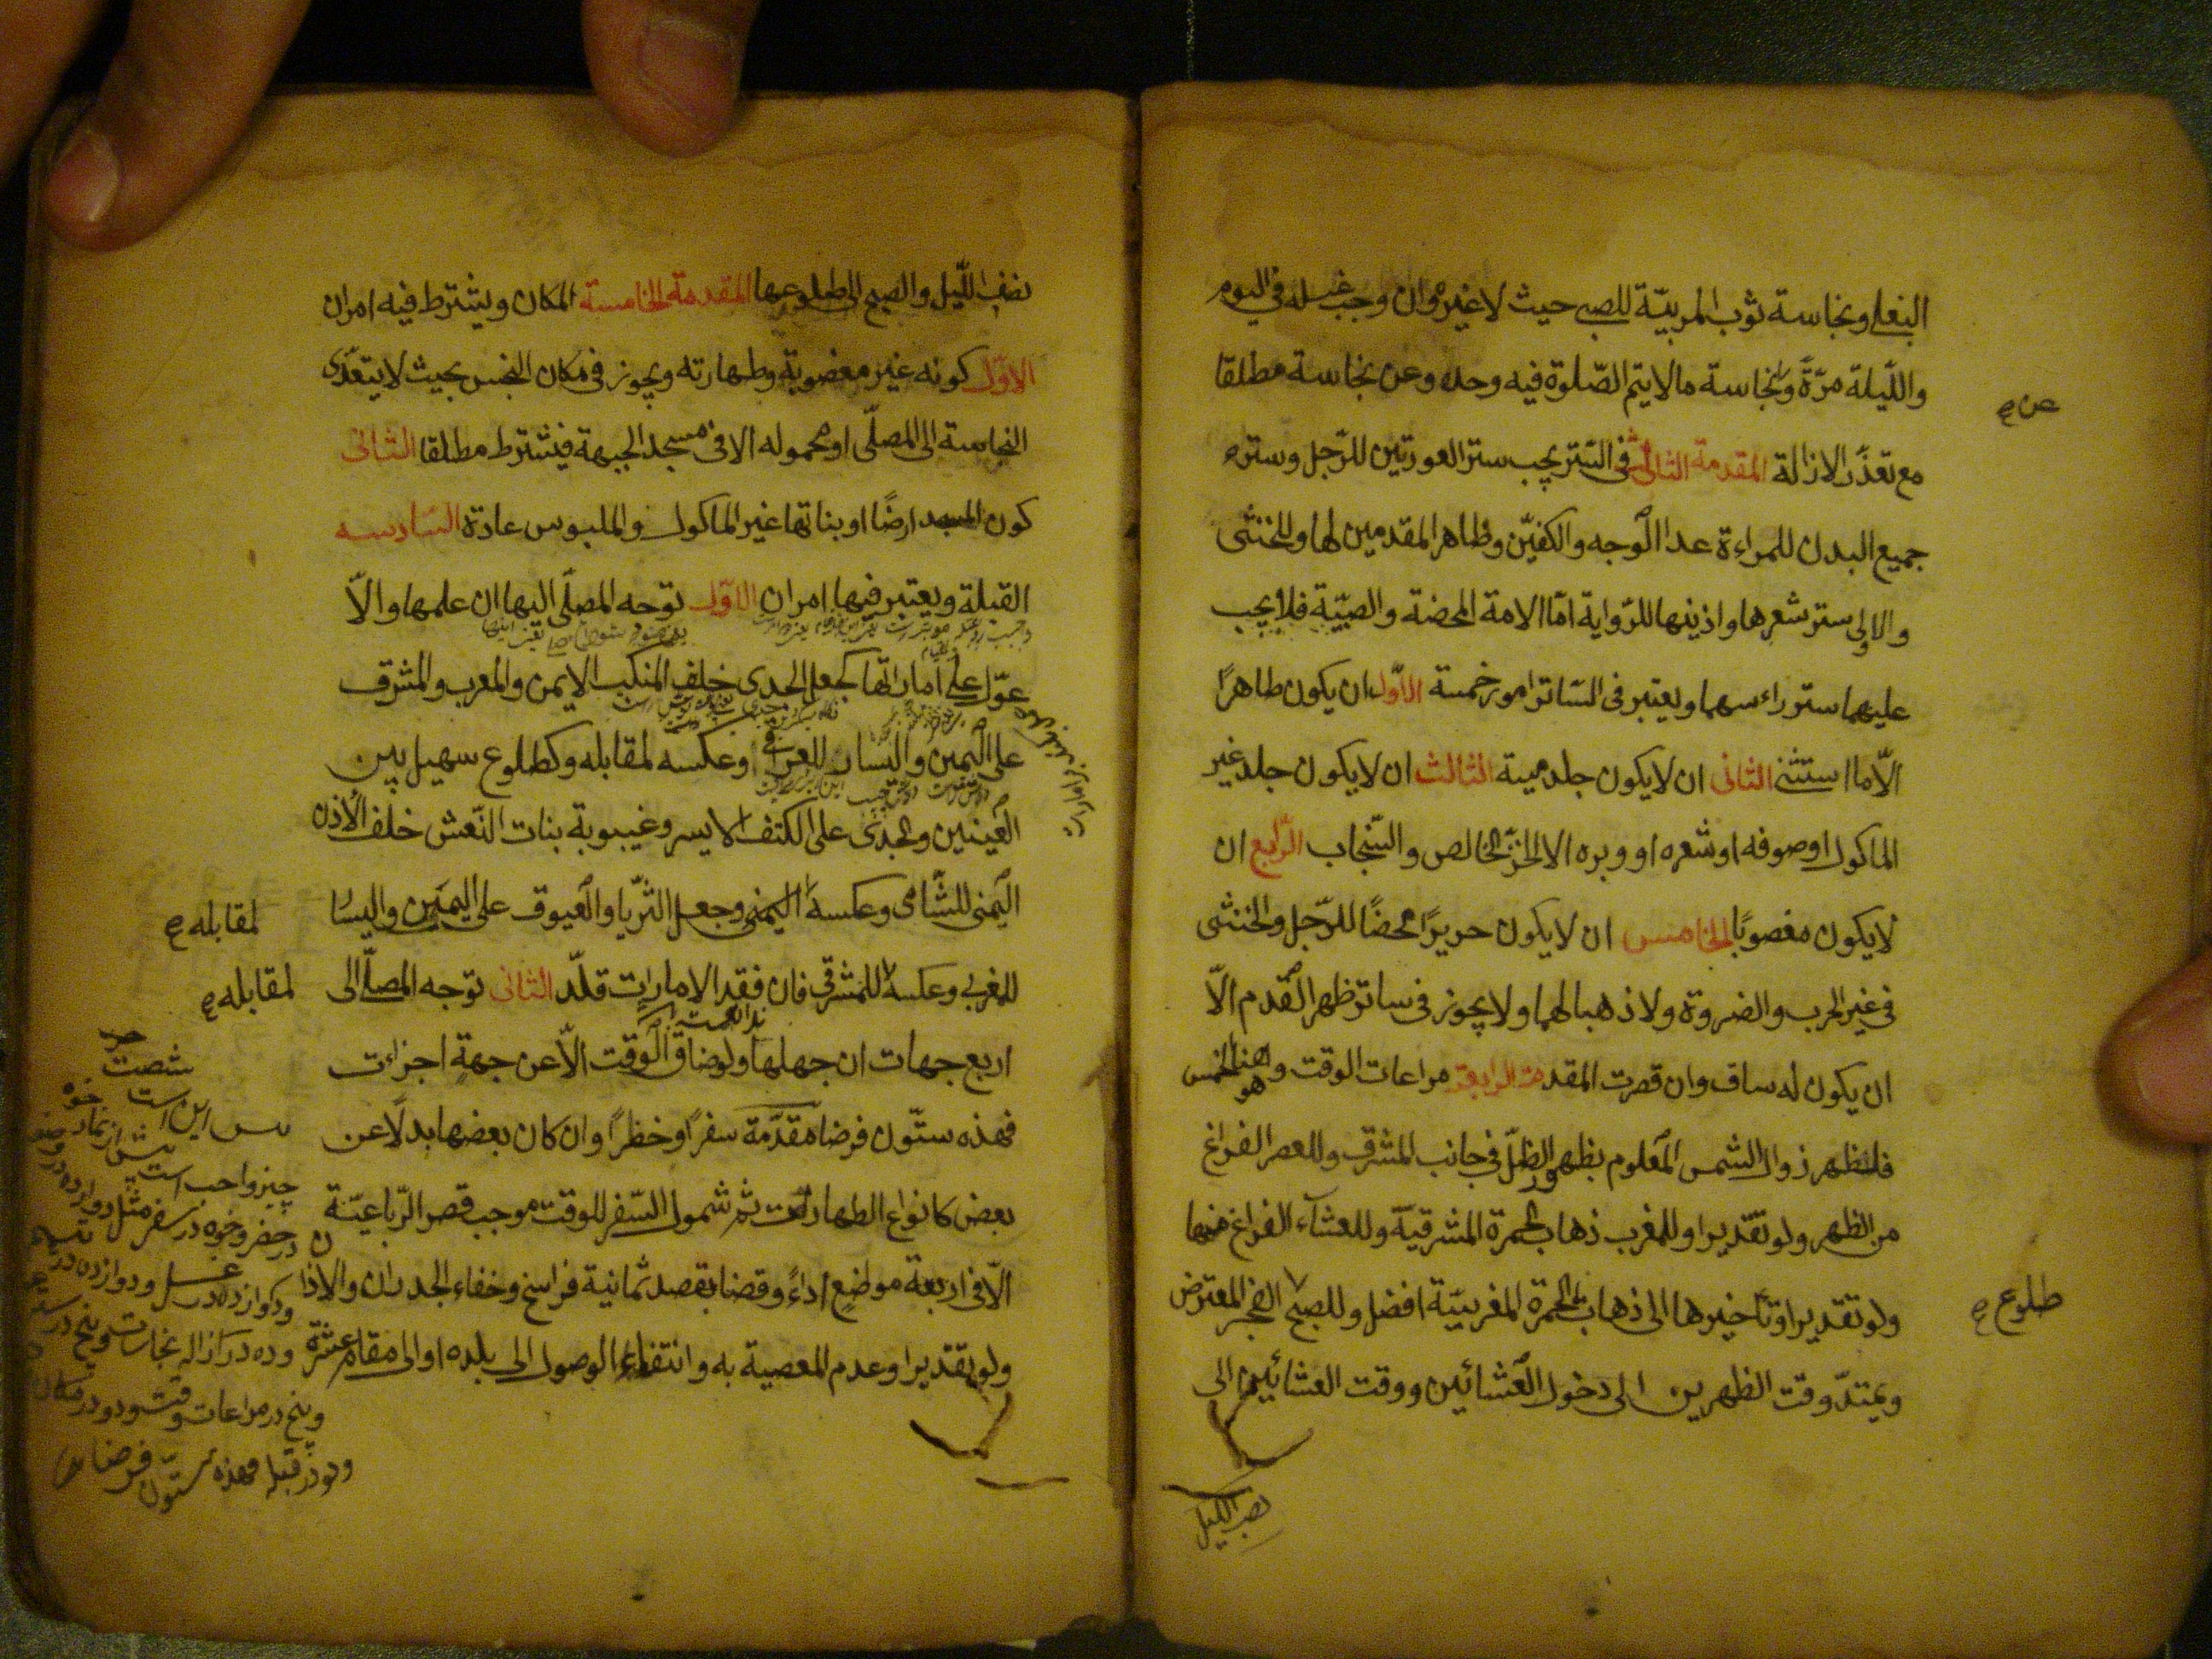 البغلي ونجاسة ثوب المربيّة للصبي حيث لا غيره وان وجب غسله في اليوم
والليلة مرّة ونجاسة ما لا يتم الصّلوة فيه وحده وعن نجاسة مطلقا
عن
مع تعذّر الازالة المقدمة الثالثة في الستر يجب ستر العورتين للرّجل وستره
جميع البدن للمراءة عدا الوجه والكفيّن وظاهر القدمين لها وللخنثى
والاولى ستر شعرها واذنيها للرّواية امّا الامة المحضة والصبيّة فلا يجب
عليهما ستر راءسهما ويعتبر فى السّاتر امور خمسة الاوّل ان يكون طاهرًا
الّا ما استثنى الثانى ان لا يكون جلد ميتة الثالث ان لا يكون جلد غير
الماكول اوصوفه اوشعره او وبره الا الخزّ الخالص والسّنجاب الرّابع ان
لا يكون مغصوبًا الخامس ان لا يكون حريرًا محضًا للرّجل والخنثى
فى غير الحرب والضروة ولا ذهبا لهما ولا يجوز فى ساتر ظهر القدم الّا
ان يكون له ساق وان قصرت المقدمة الرابعة مراعات الوقت وهو هنا الخمس
فللظهر زوال الشمس المعلوم بظهور الظلّ فى جانب المشرق وللعصر الفراغ
من الظهر ولو تقديرا وللمغرب ذهاب الحمرة المشرقيّة وللعشآء الفراغ منها
ولو تقديرا وتاخيرها الى ذهاب الحمرة المغربيّة افضل وللصبح الفجر المعترض
طلوع
ويمتدّ وقت الظهرين الى دخول العشائين ووقت العشائين الى
نصف الليل
نصف اللّيل والصبح الى طلوعها المقدمة الخامسة المكان ويشترط فيه امران
الاوّل كونه غير مغصوبة وطهارته ويجوز فى مكان النجس بحيث لا يتعدّى
النجاسة الى المصلّى او محموله الا فى مسجد الجبهة فيشترط مطلقا الثانى
كون المسجد ارضًا او بناتها غير الماكول والملبوس عادة السّادسه
القبلة ويعتبر فيها امران الاوّل توجه المصلّى اليها ان علمها والّا
عوّل على اماراتها كجعل الجدى خلف المنكب الايمن والمغرب والمشرق
على اليمين واليسار للعراقى وعكسه لمقابله وكطلوع سهيل بين
العينين والجدى على الكتف الايسر وغيبوبة بنات النّعش خلف الأذن
اليمنى للشّامى وعكسه اليمنى وجعل الثريّا والعيوق على اليمين واليسار
لمقابله
للمغربى وعكسه للمشرقى فان فقد الامارات قلّد الثانى توجه المصلّى الى
لمقابله
اربع جهات ان جهلها ولو ضاق الوقت الّا عن جهةٍ اجزات
فهذه ستّون فرضا مقدّمة سفرًا وحضرًا وان كان بعضها بدلًا عن
بعض كانواع الطهارات ثم شمول السّفر للوقت موجب قصر الرّباعيّة
الّا فى اربعة موضع اداءً وقضا بقصد ثمانية فراسخ وخفاء الجدران والاذان
ولو تقديرا وعدم المعصية به وانتفاء الوصول الى بلده او الى مقام عشرة
شصت
پس اين است
چيز واجب است پيش از نماز
در حضر وخوه در سفر مثل دوازده در وضو
ودوازده در غسل ودوازده در تيمم
وده در ازاله نجاست وپنج در ستر
وپنج در مراعات وقت ودو در مكان
ودو در قبله فهذه ستّون فرضا